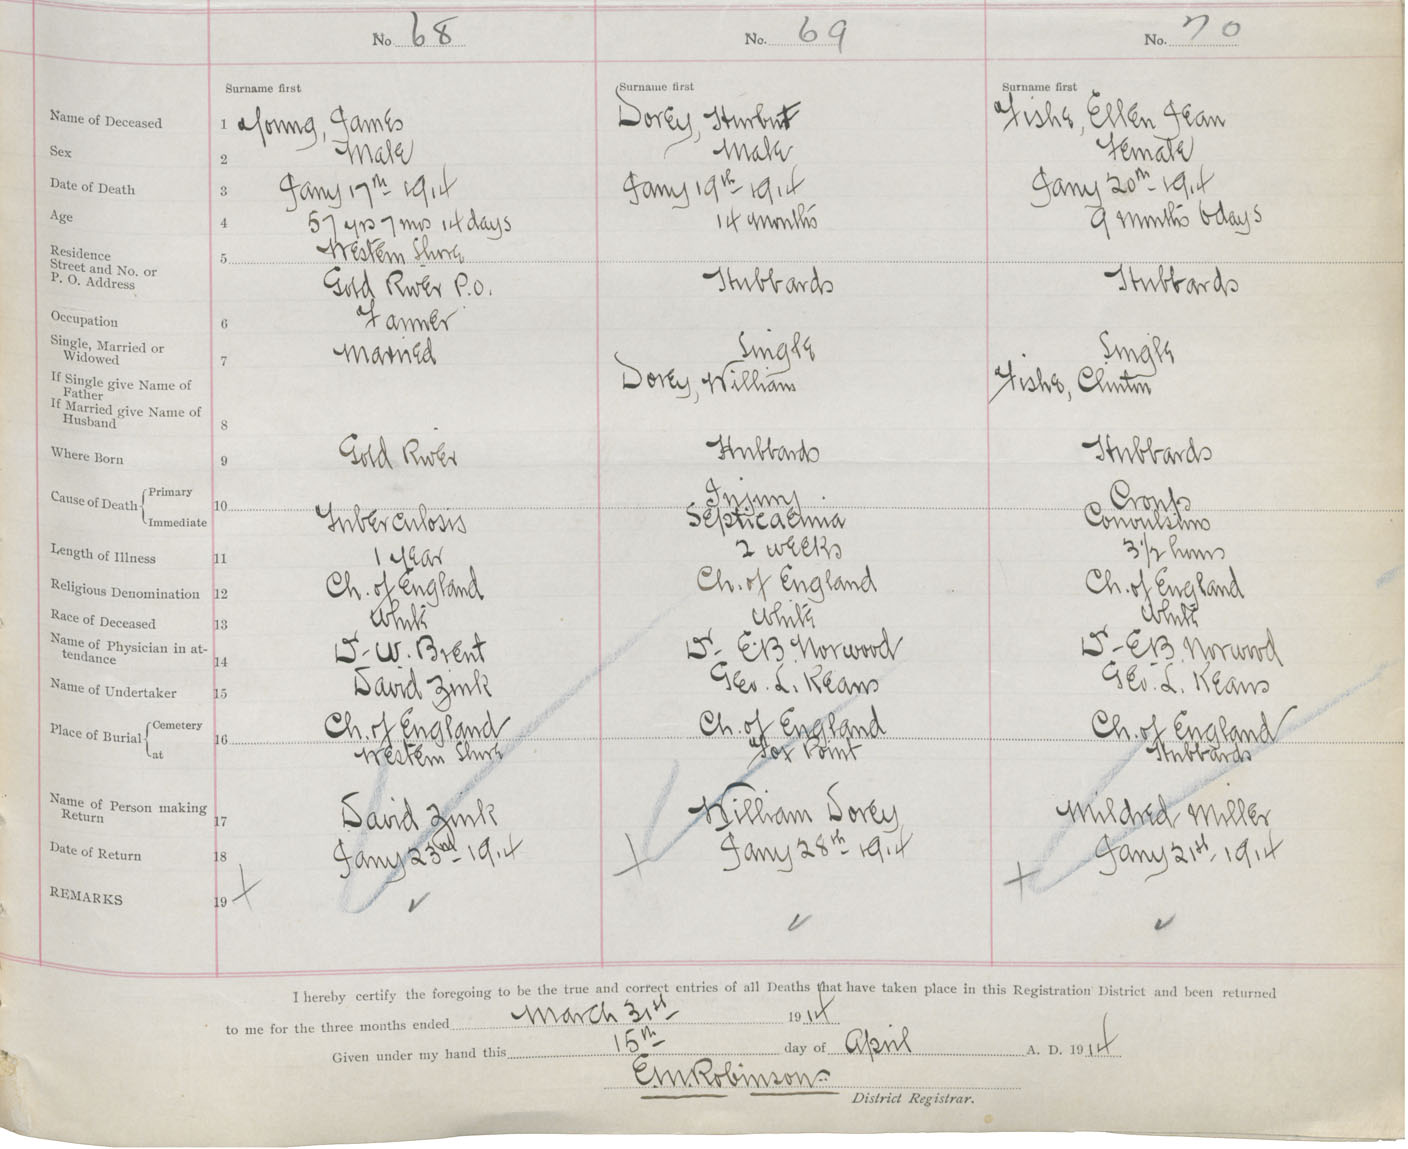 No. 68 No. 69 No. 70
Surname first Surname first Surname first
Name of Deceased 1 Young, James Dorey, Hurbut Fishe, Ellen Jean
Sex 2 Male Male Female
Date of Death 3 Jany 17th 1914 Jany 19th 1914 Jany 20th 1914
Age 4 57 yrs 7 mos 14 days 14 months 9 months 6 days
Residence Western Shore
Street and No. or 5
P. O. Address Gold River P.O. Hubbards Hubbards
Occupation 6 Farmer
Single, Married or
Widowed 7 Married Single Single
If Single give Name of
Father Dorey, William Fishe, Clinton
If Married give Name of
Husband 8
Where Born 9 Gold River Hubbards Hubbards
Cause of Death Primary 10 Injury Croup
Immediate Tuberculosis Septicaemia Convulsions
Length of Illness 11 1 year 2 weeks 3 1/2 hours
Religious Denomination 12 Ch. of England Ch. of England Ch. of England
Race of Deceased 13 White White White
Name of Physician in at-
tendance 14 Dr W. Brent Dr EB. Norwood Dr EB. Norwood
Name of Undertaker 15 David Zink Geo. L. Keans Geo. L. Keans
Place of Burial Cemetery 16 Ch. of England Ch. of England Ch. of England
at Western Shore Fox Point Hubbards
Name of Person making
Return 17 David Zink William Dorey Mildred Miller
Date of Return 18 Jany 23rd 1914 Jany 28th 1914 Jany 21st, 1914
REMARKS 19
I hereby certify the foregoing to be the true and correct entries of all Deaths that have taken place in this Registration District and been returned
to me for the three months ended March 31st 1914
Given under my hand this 15th day of April A. D. 1914
E.M. Robinson
District Registrar.